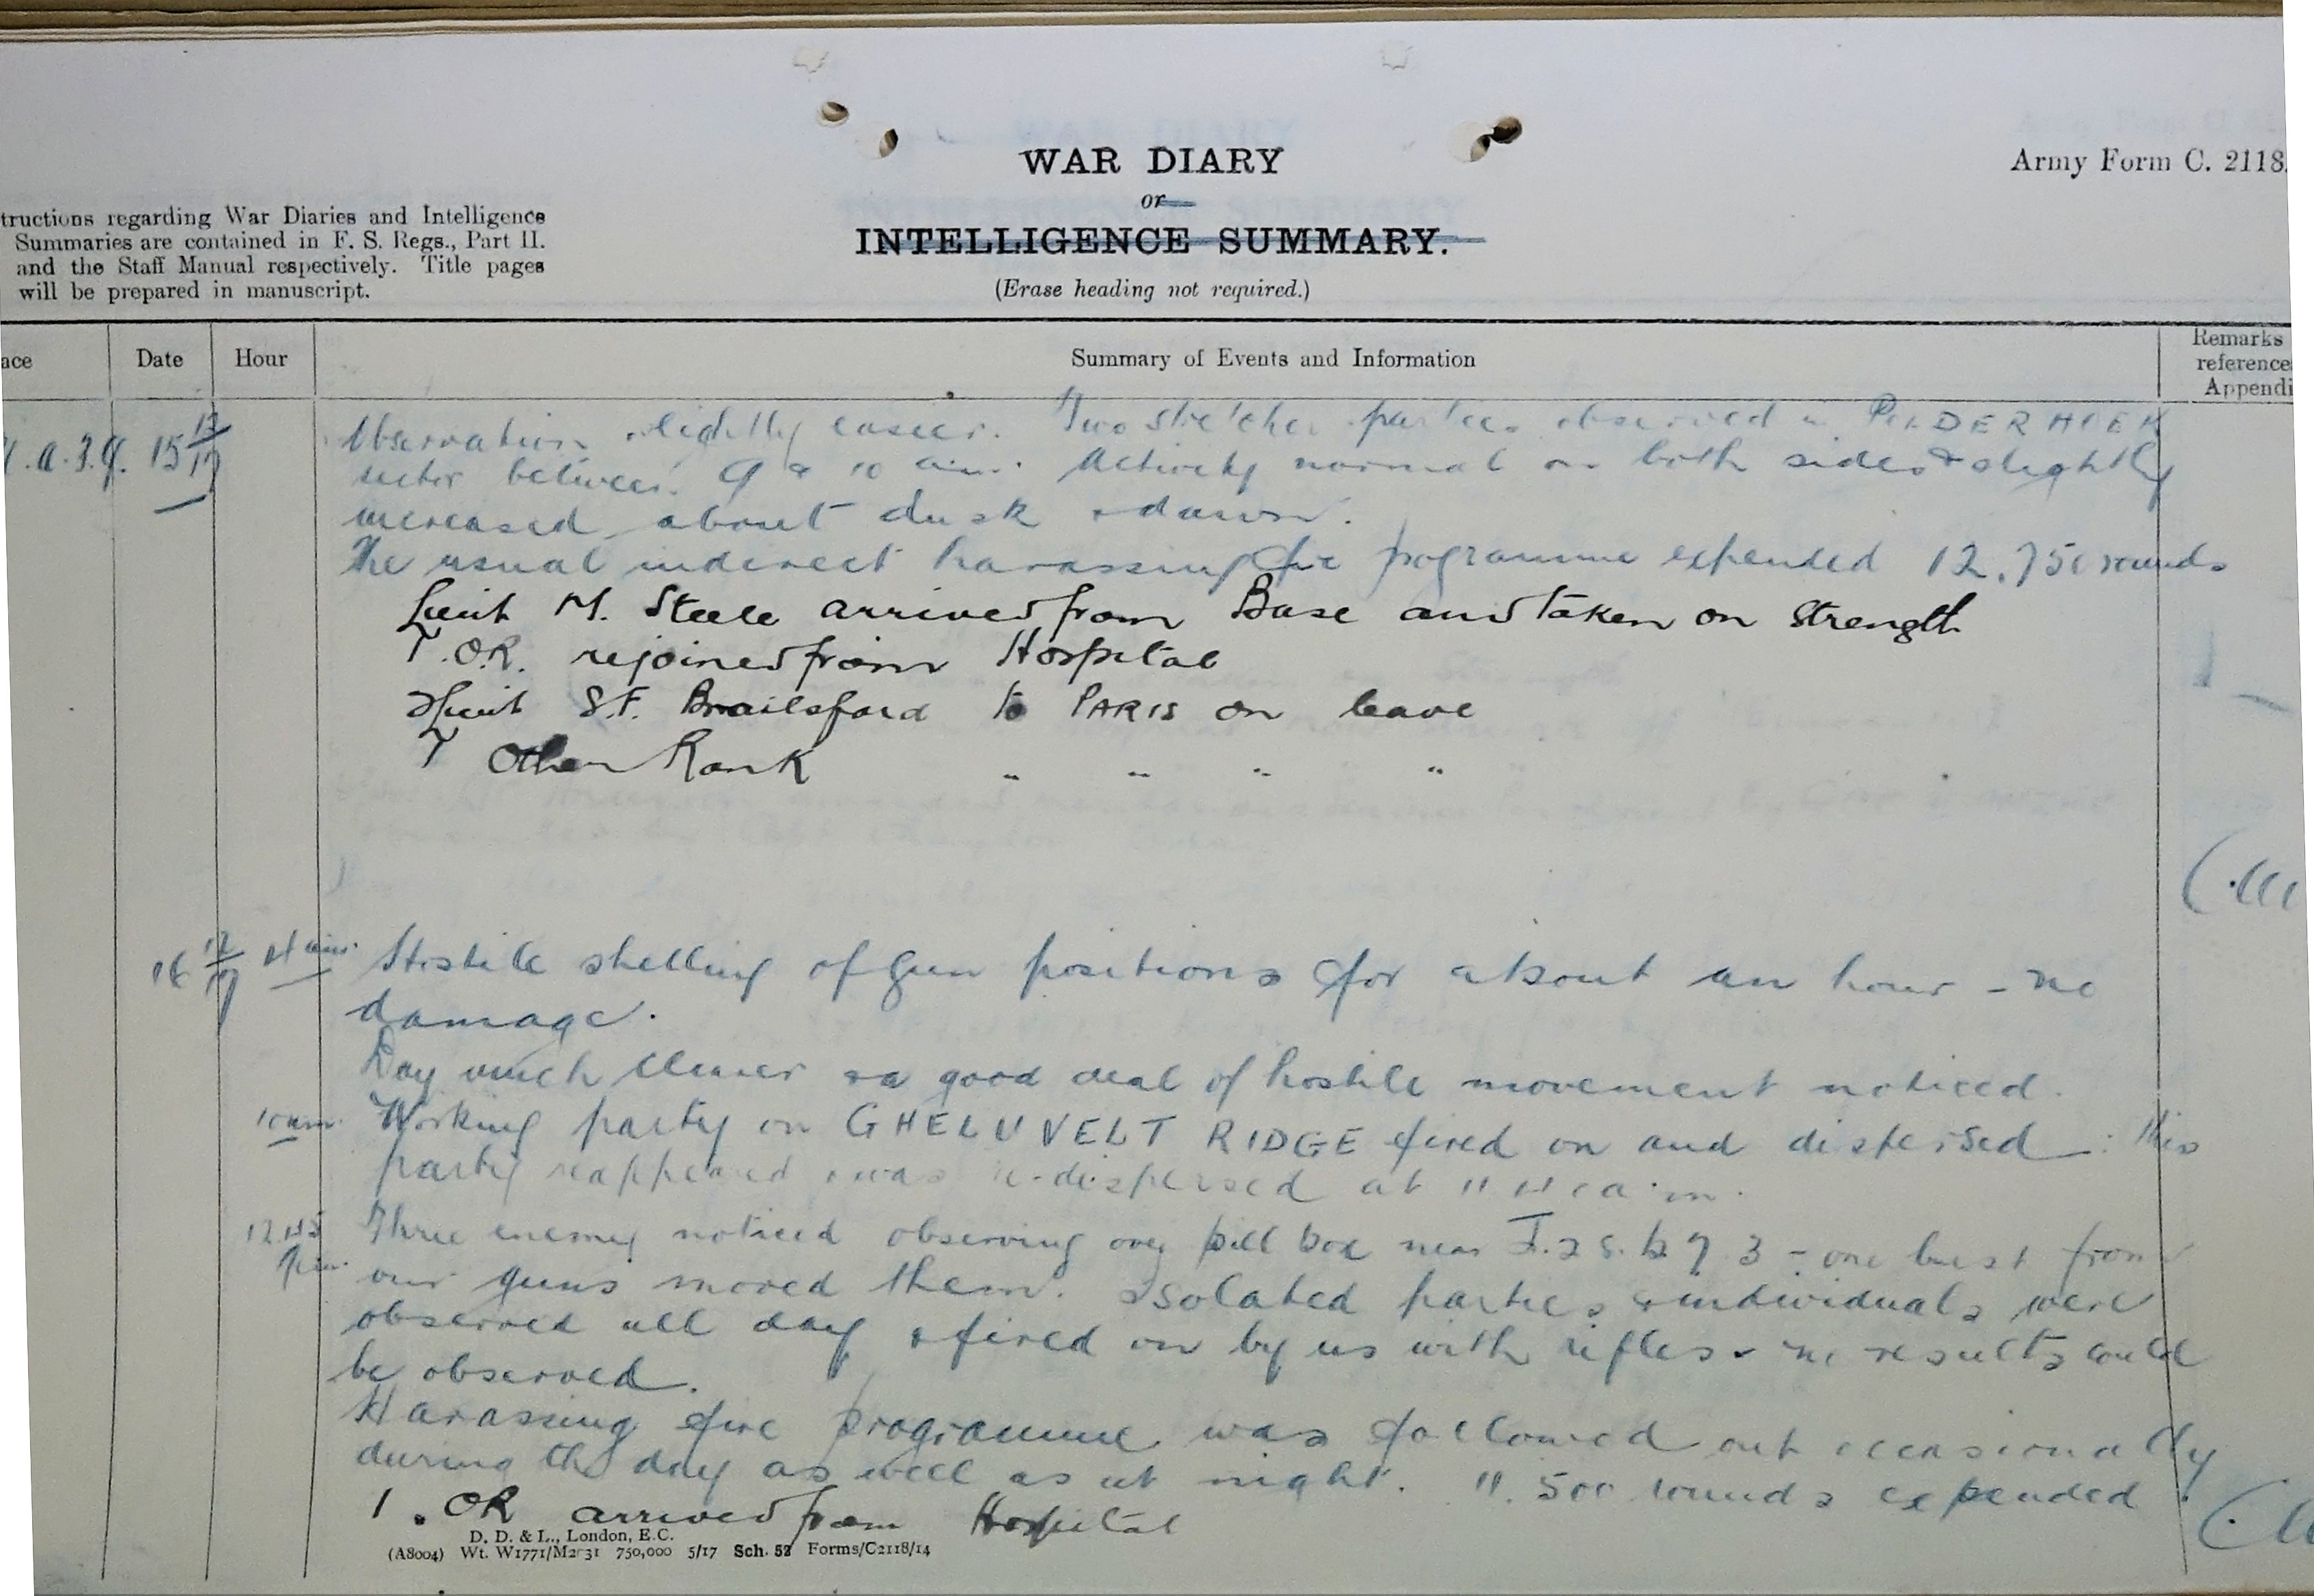 WAR DIARY
Army Form C. 2118.
or
tructions regarding War Diaries and Intelligence
Summaries are contained in F. S. Regs., Part II.
and the Staff Manual respectively. Title pages
will be prepared in manuscript.
INTELLIGENCE SUMMARY.
(Erase heading not required.)
ace Date Hour Summary of Events and Information Remarks
reference
Appendi
15 12/17 Observation slightly easier. Two stretcher parties observed in POLDERHOEK
sector between 9 & 10 am. Activity normal on both sides & slightly
increased about dusk & dawn.
The usual indirect harassing fire programme expended 12,750 rounds
Lieut M. Steele arrived from Base and taken on Strength
1.O.R. rejoined from Hospital
2/Lieut S.F. Brailsford to PARIS on leave
1 Other Rank " " " "
16 12/17 4 am. Hostile shelling of gun positions for about an hour - no
damage.
Day much clearer & a good deal of hostile movement noticed.
10 am. Working party on GHELUVELT RIDGE fired on and dispersed: this
party reappeared & was re-dispersed at 11.40 a.m.
12.45 Three enemy noticed observing over pill box near J.28.b.7.3 - one burst from
pm. our guns moved them. Isolated parties & individuals were
observed all day & fired on by us with rifles - no results could
be observed.
Harassing fire programme was followed out occasionally
during the day as well as at night. 11,500 rounds expended
1. OR arrived from Hospital
D. D. & L., London, E.C.
(A8004) Wt. W1771/M2131 750,000 5/17 Sch. 52 Forms/C2118/14